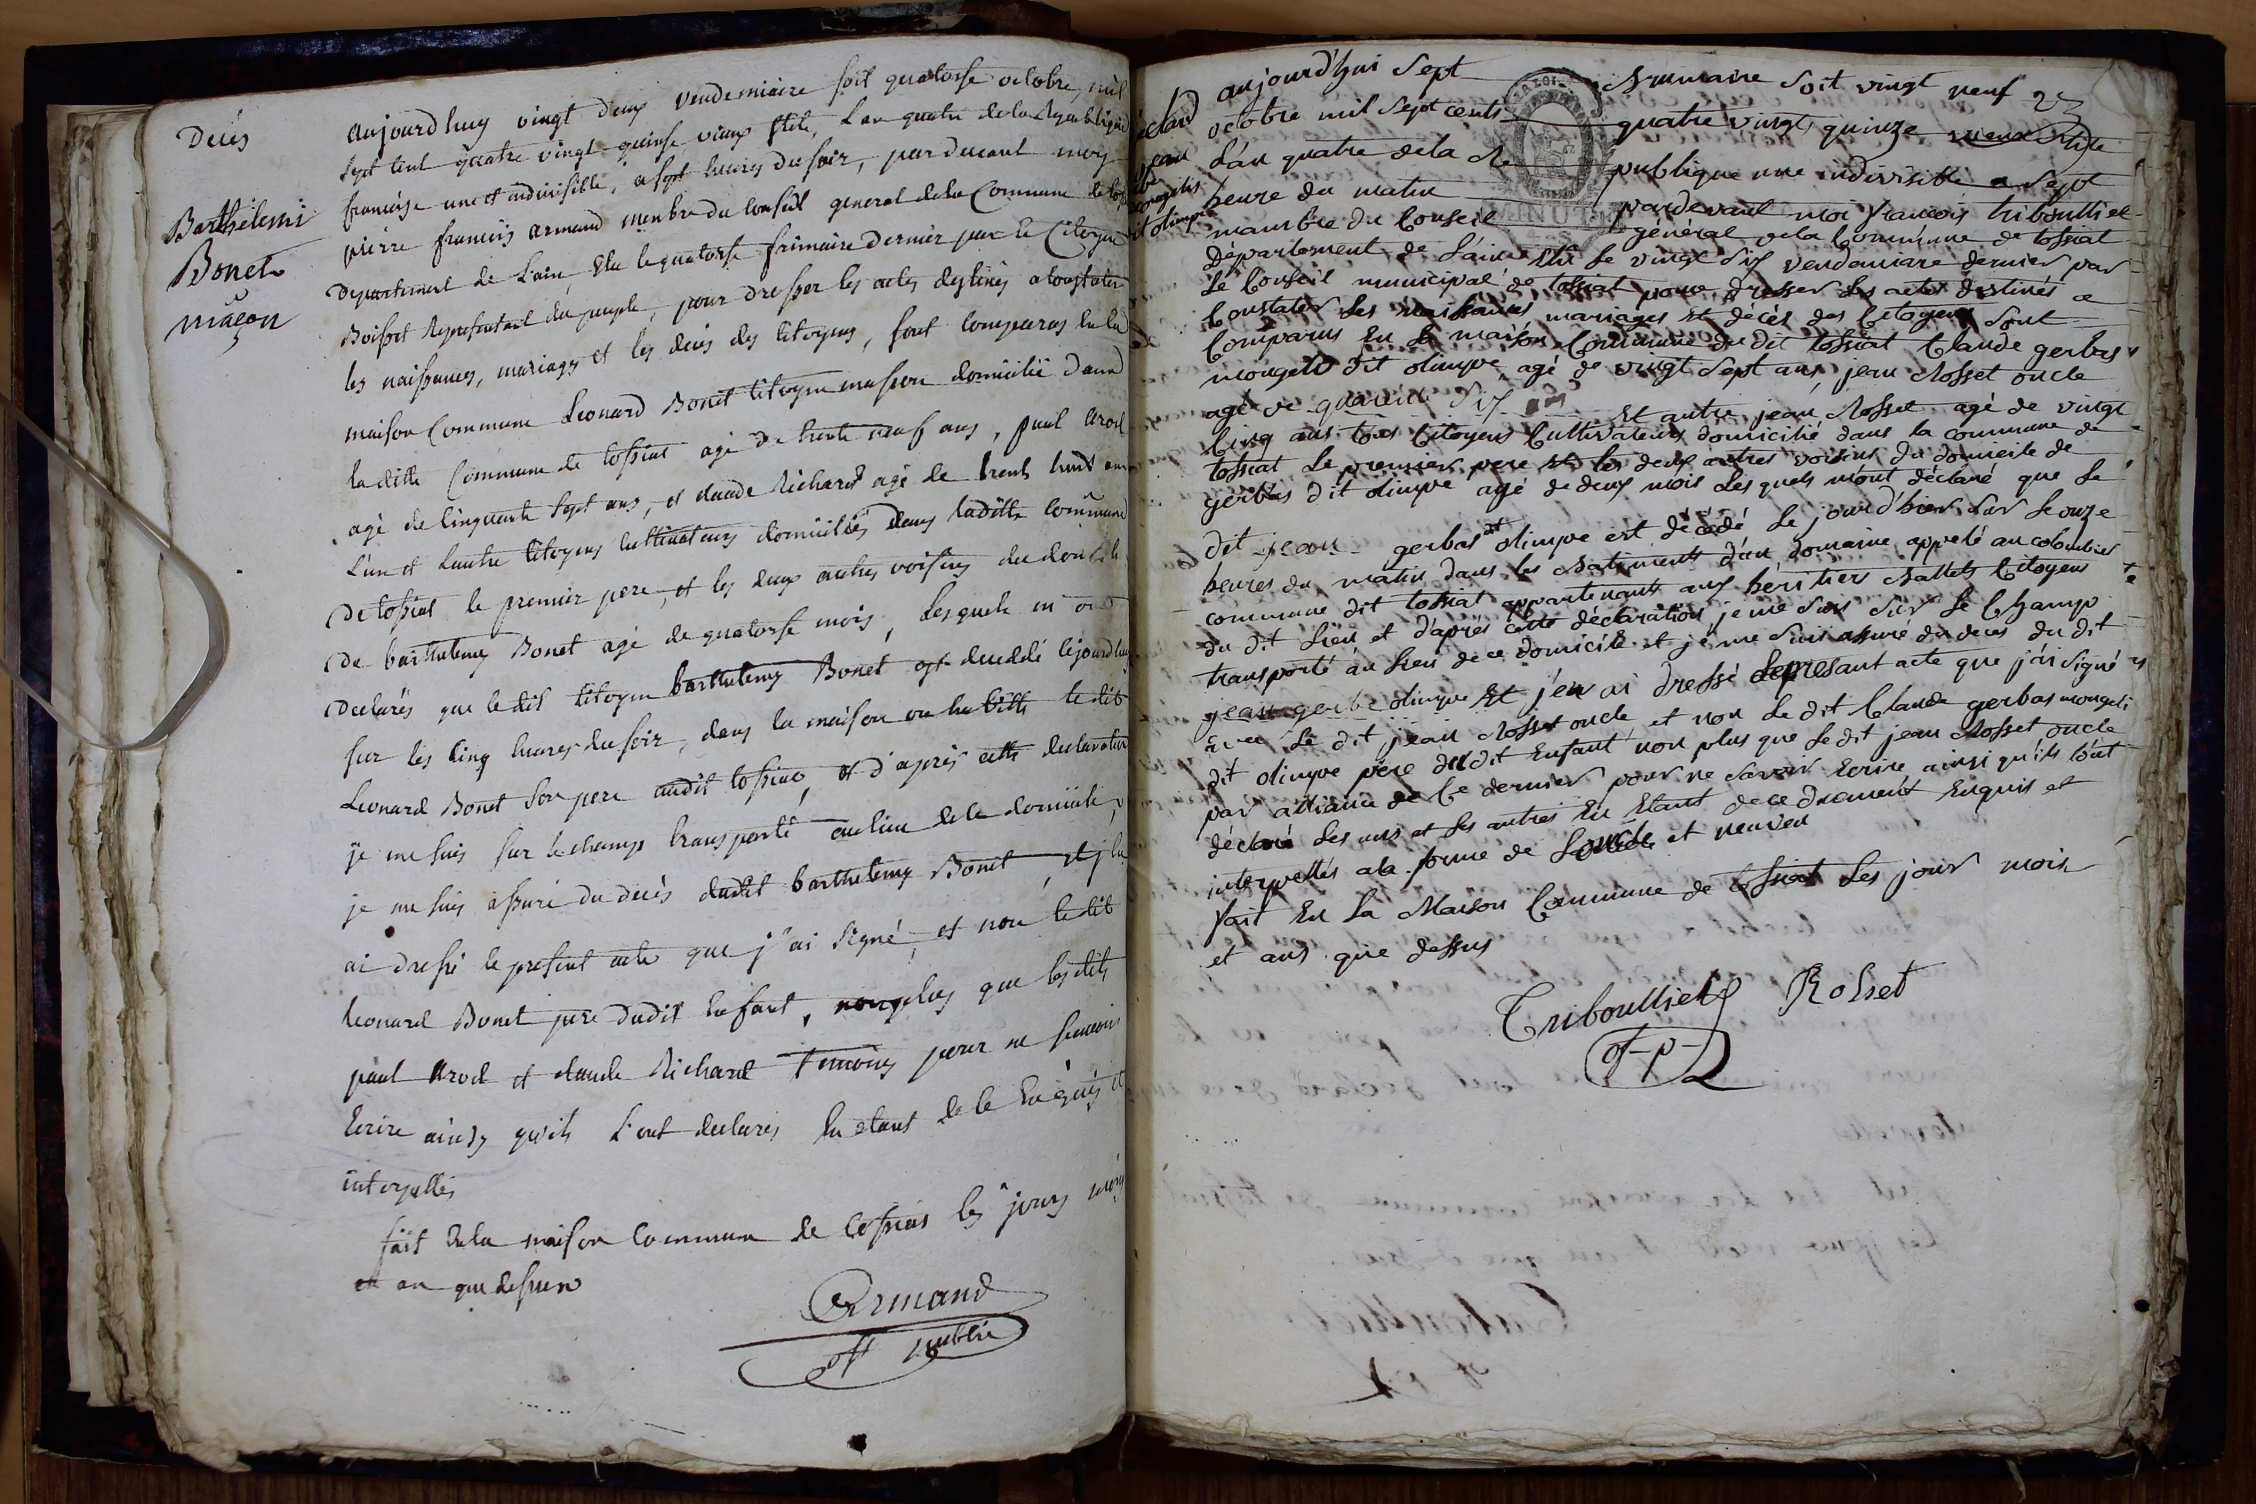 Décès
Barthélemi
Bonet
maçon
aujourdhuy vingt deux vendemiaire soit quatorse octobre mil
sept cent quatre vingt quinse vieux stile, L'an quatre de la Republique
françoise une et indivisible, a sept heures du soir, par devant moy
pierre françois armand membre du Conseil general de la Commune de
département de L'ain, Elu le quatorse frimaire dernier par le Citoyen
Boisset Representant du peuple, pour dresser les actes destinés a constater
les naissances, mariages et les décés des Citoyens, sont comparus en la
maison Commune Leonard Bonet Citoyen masson domicilié dans
la ditte Commune de tossiat agé de trente neuf ans, paul arod
agé de Cinquante sept ans, et claude Richard agé de trente huit ans
L'un et L'autre Citoyens Cultivateurs domiciliés dans laditte commune
de tossiat le premier pere, et les deux autres voisins du domicile
de barthelemy Bonet agé de quatorse mois, Lesquels m'ont
declarés que le dit Citoyen barthelemy Bonet est decedé cejourdhuy
sur les Cinq heures du soir, dans la maison ou habitte le dit
Leonard Bonet son pere audit tossiat, et d'après cette declaration
je me suis sur le champs transporté au lieu de ce domicile,
je me suis assuré du decès dudit barthelemy Bonet, et j'en
ai dressé le present acte que j'ai signé, et non le dit
leonard Bonet pere dudit Enfant, non plus que les dits
paul arod et claude Richard temoins pour ne scavoir
Ecrire ainsy qu'ils L'ont declarés En etant de ce Enquis et
interpellés
fait En la maison Commune de tossiat les jours mois
et an que dessus
Armand
off public
aujourd'hui sept Brumaire soit vingt neuf 23
octobre mil sept cents quatre vingt quinze vieux stile
L'an quatre de la Republique une indivisible a sept
heure du matin pardevant moi francois triboulliet
manbre du Conseil general de la Commune de tossiat
département de L'ain Elu le vingt six vendemiare dernier par
le Conseil municipal de tossiat pour dresser les actes destinés a
Constater les naissances mariages et décès des Citoyens sont
Comparus En la maison Commune du dit tossiat Claude gerbas
mongeli dit olimpe agé de vingt sept ans, jean Rosset oncle
agé de quarante six ans Et autre jean Rosset agé de vingt
Cinq ans tous Citoyens Cultivateurs domicilié dans la commune de
tossiat Le premier pere Et les deux autres voisins du domicile de
gerbas dit olimpe agé de deux mois Lesquels m'ont déclaré que le
dit jean gerbas dit olimpe est décédé le jour d'hier sur le onze
heures du matin dans les Batiments d'un domaine appelé au colombier
commune dit tossiat appartenant aux héritiers Ballets Citoyens
du dit Lieu et d'après cette déclaration je me suis sur le Champ
transporté au Lieu de ce domicile et je me suis assuré du deces du dit
jean gerbe olimpe Et j'en ai dressé le presant acte que j'ai signé
avec le dit jean Rosset oncle et non le dit Claude gerbas mongeli
dit olimpe père du dit Enfant non plus que le dit jean Rosset oncle
par alliance de Ce dernier pour ne savoir Ecrire ainsi qu'ils l'ont
déclaré les uns et les autres En Etant de ce duement Enquis et
interpellés a la forme de L'oncle et neuveu
fait En La Maison Commune de tossiat Les jour mois
et ans que dessus
Triboulliet Rosset
of-p-